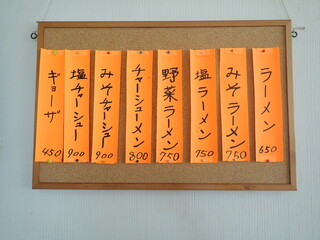 ラーメン 650
みそラーメン 750
塩ラーメン 750
野菜ラーメン 750
チャーシューメン 800
みそチャーシュー 900
塩チャーシュー 900
ギョーザ 450